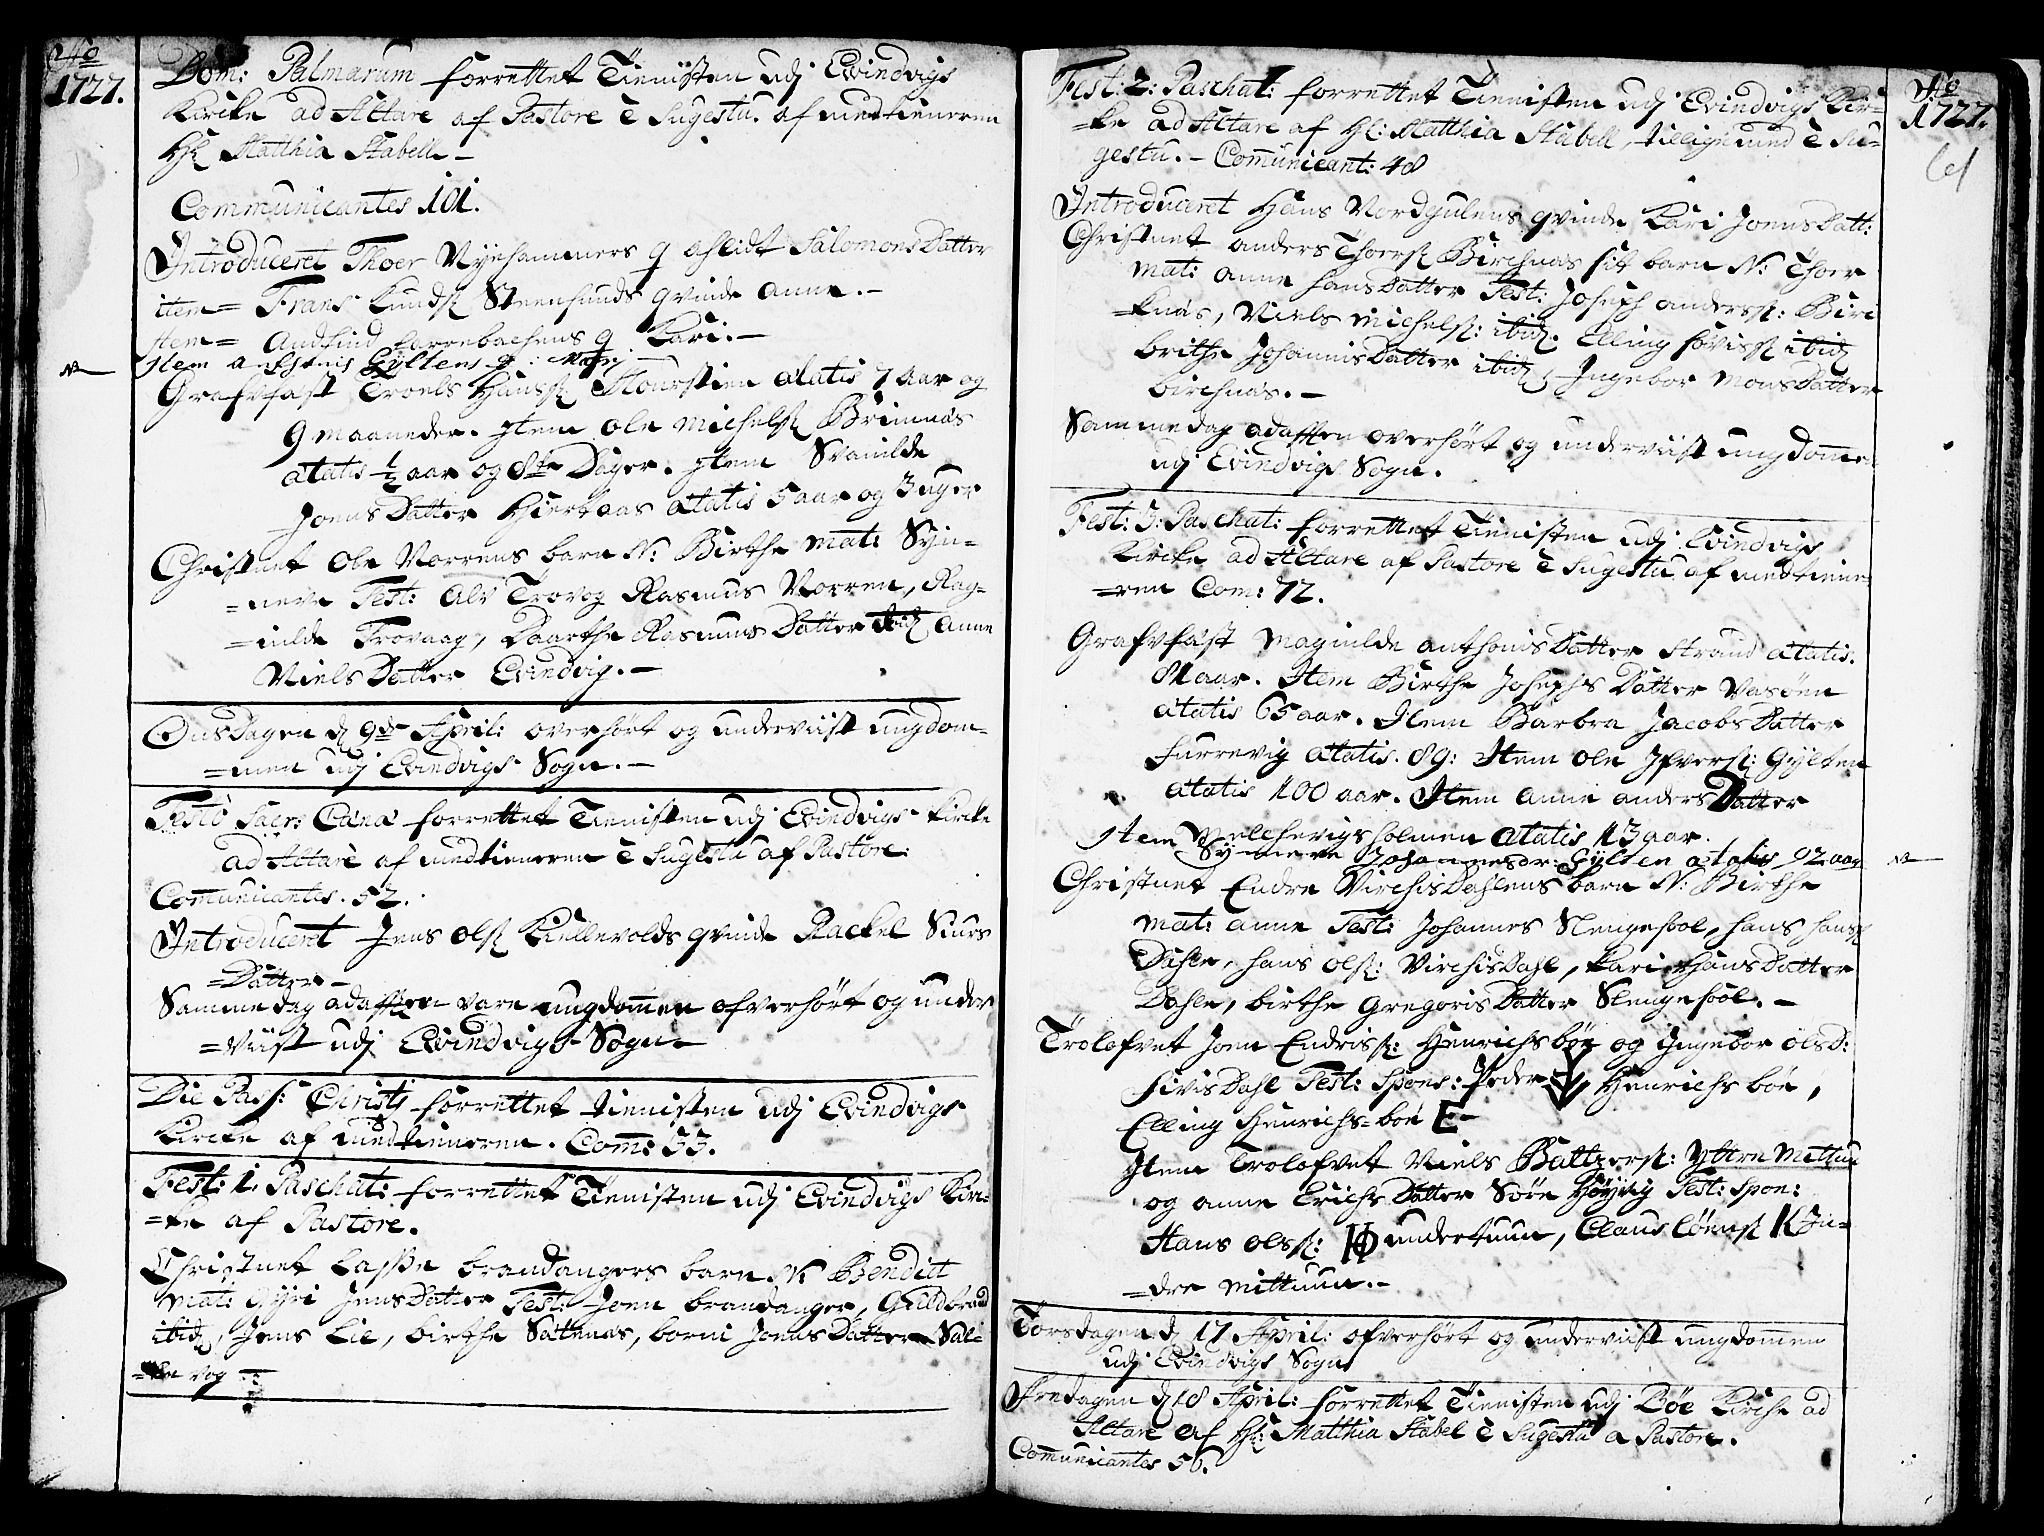 Ao
1727.
Dom: Palmarum forrettet Tienisten udj Evindvigs
Kircke ad Altare af Pastore è Sugestu. af medtieneren
Hr Matthia Stabell –
Communicantes 101.
Introduceret Thoer Nyehammers q aslidt Salomons Datter
item = Frans Knuds. Steensunds qvinde Anne. –
item = Andfind Farrebachens q Kari. –
Item anstenis Gyltens q: Mari –
Grafvfæst Troels Hanss. ætatis 7 aar og
9 maaneder. Item Ole Michels. Brimnæs
ætatis ½ aar og 8te Dager. Item Svanilde
Joens Datter Hiertaas ætatis 5 aar og 3 uger
Christnet Ole Norrens barn N: Birthe mat: Syn=
=neve Test: Alv Trovog Rasmus Norren, Rag=
=nilde Trovaag, Daarthe Rasmus Datter ibid. Anne
Niels Datter Evindvig. –
Onsdagen d. 9de April: overhørt og underviist ungdom=
=men udj Evindvigs Sogn. –
Festo Sacr: Cænæ forrettet Tienisten udj Evindvigs Kircke
ad Altare af medtieneren è Sugestu af Pastore:
Comunicantes. 52.
Introduceret Jens Ols. Kiellevolds qvinde Rackel Siurs
=Datter –
Samme dag ad afften vare ungdomen ofverhørt og under
=viist udj Evindvigs Sogn –
Die Pass: Christj forrettet tienisten udj Evindvigs
Kircke af medtieneren. Com: 53.
Fest: 1. Paschat: forrettet Tienisten udj Evindvigs Kir=
=ke af Pastore.
Christnet Lasse brandangers barn N: Bendict
mat: Gyri Jens Datter Test: Joen brandanger, Guldbrand
ibid, Jens Lie, birthe Sattenæs, borni Jonas Datter Sal=
=te vog –
Fest: 2: Paschat: forrettet Tienisten udj Evindvigs Kir=
=ke ad Altare af Hr: Matthia Stabell, tilligemed è Su=
gestu. – Comunicant: 48
Introduceret Hans Nordgulens qvinde Kari Joens Datt:
Christnet Anders Thoers. Birchnæs sit barn N: Thoer
mat: Anne Hans Datter Test: Joseph Anderss: Birc
knæs, Niels Michels: ibid. Elling ibid
brithe Johannis Datter ibid, Ingebor Mons Datter
birchnæs. –
Samme dag ad afften overhørt og underviist ungdomen
udj Evindvigs Sogn.
Fest: 3: Paschat: forrettet Tienisten udj Evindvigs
Kircke ad Altare af Pastore è Sugestu af medtiene=
=ren Com: 72.
Grafvfæst Magnilde Anthonis Datter Strand ætatis.
81 aar. Item Birthe Josephs Datter Vasöen
ætatis 65 aar. Item Barbra Jacobs Datter
Furrevig ætatis. 89: Item Ole Ifvers: Gylten
ætatis 100 aar. Item Anne Anders Datter
holmen ætatis 13 aar.
Item Synneve Johannesdr: Gylten ætatis 92 aar
Christnet Endre Virchis Dahlens barn N: Birthe
mat: Anne Test: Johannes Slengesol, Hans Hans.
Dahle, Hans Ols: Virchisdahl, Kari Hans Datter
Dahle, birthe Gregoris Datter Slengesöl. –
Trolofvet Joen Endriss: Henrichs böe og Ingebor Ols D:
Sivisdahl Test: Spons: Peder Henrichs böe,
Elling Henrichs=böe E –
Item Trolofvet Niels Baltzers: Yttre Mittun
og Anne Erichs Datter Söre Höyvig Test: Spon:
Hans Olss: HO undertuun, Claus K In=
=dre Mittuun. –
Torsdagen d. 17 April: ofverhørt og underviist ungdomen
udj Evindvigs Sogn
Fredagen d 18 April: forrettet Tienisten udj Böe Kirche ad
Altare af Hr: Matthia Stabel è Sugestu a Pastore.
Comunicantes 56.
Ao
1727.
61